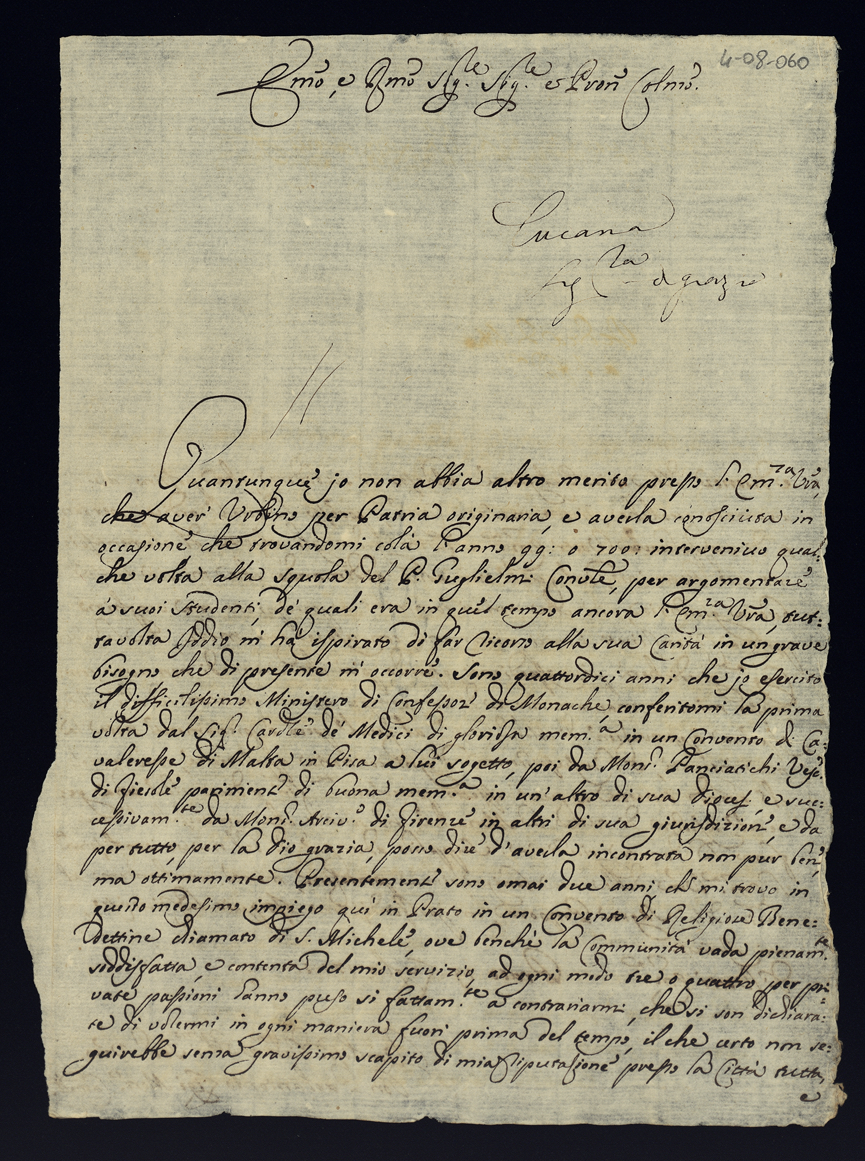 4-08-060
Emo, e Rmo Sigre. Sigre. e Pron Colmo.
Lucana
di grazia
Quantunque jo non abbia altro merito presso l'Emza. Vra,
che aver Urbino per Patria originaria, e averla conosciuta in
occasione che trovandomi colà l'anno 99: o 700: intervenivo qual=
che volta alla squola del P. Guglielmi Convle, per argomentare
à suoi studenti, de quali era in quel tempo ancora l'Emza. Vra, tut=
tavolta Iddio m'ha ispirato di far ricorso alla sua Carità in un grave
bisogno che di presente m'occorre. Sono quattordici anni che jo esercito
il difficilissimo Ministero di Confessor di Monache, conferitomi la prima
volta dal Sigr. Cardle de Medici di gloriosa mem.a in un Convento di Ca=
valeresse di Malta in Pisa a lui sogetto, poi da Monsr. Panciatichi Vesc.
di Fiesole parimente di buona mem.a in un'altro di sua Diocesi, e suc=
cessivam.te da Monsr. Arciv.o di Firenze in altri di sua giurisdizione, e da
per tutto, per la Dio grazia, posso dire d'averla incontrata non pur bene,
ma ottimamente. Presentemente sono omai due anni che mi trovo in
questo medesimo impiego quì in Prato in un Convento di Religiose Bene=
dettine chiamato di S. Michele, ove benchè la Communità vada pienam.te
soddisfatta, e contenta del mio servizio, ad ogni modo tre o quattro per pri=
vate passioni hanno preso sì fattam.te a contrariarmi, che si son dichiara=
te di volermi in ogni maniera fuori prima del tempo, il che certo non se=
guirebbe senza gravissimo scapito di mia riputazione presso la Città tutta,
e